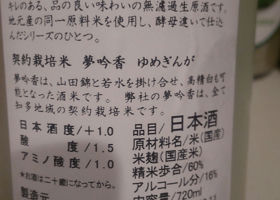 キレのある、品の良い味わいの無濾過生原酒です。
地元産の同一原料米を使用し、酵母違いで仕込ん
だシリーズのひとつ。
契約栽培米 夢吟香 ゆめぎんが
夢吟香は、山田錦と若水を掛け合せ、高精白も可
能となった酒米です。 弊社の夢吟香は、全て
知多地域の契約栽培米です。
日本酒度/+1.0
酸度/1.5
アミノ酸度/1.0
*お酒は二十歳になってから。
製造元
品目/日本酒
原材料名/米(国産)
米麹(国産米)
精米歩合/60%
アルコール分/16%
内容量/720ml